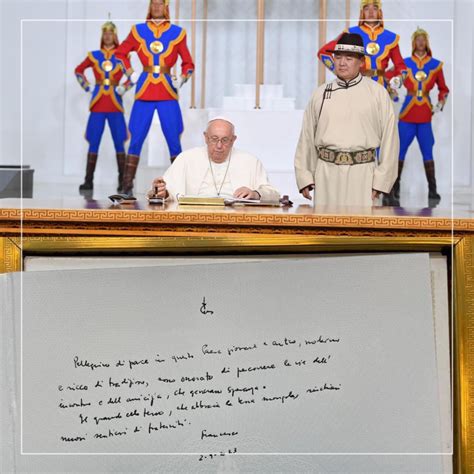 Pellegrino di pace in questo Paese giovane e antico, moderno
e ricco di tradizione, sono onorato di percorrere le vie dell'
incontro e dell'amicizia, che generano speranza.
Il grande cielo terso, che abbraccia la terra mongola, rischiari
nuovi sentieri di fraternità.
Francesco